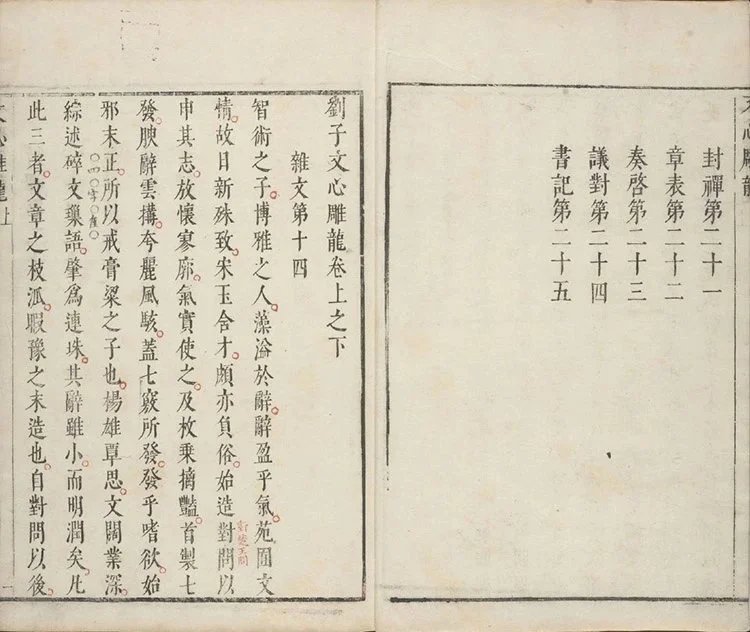 文心雕龍
封禪第二十一
章表第二十二
奏啓第二十三
議對第二十四
書記第二十五
劉子文心雕龍卷上之下
雜文第十四
智術之子博雅之人藻溢於辭辭盈乎氣苑囿文
情故日新殊致宋玉含才頗亦負俗始造對問以
對楚王問
申其志放懷寥廓氣實使之及枚乘摛豔首製七
發腴辭雲搆夸麗風駭蓋七竅所發發乎嗜欲始
邪末正所以戒膏粱之子也楊雄覃思文闊業深
綜述碎文璅語肇爲連珠其辭雖小而明潤矣凡
此三者文章之枝派暇豫之末造也自對問以後
文心雕龍上